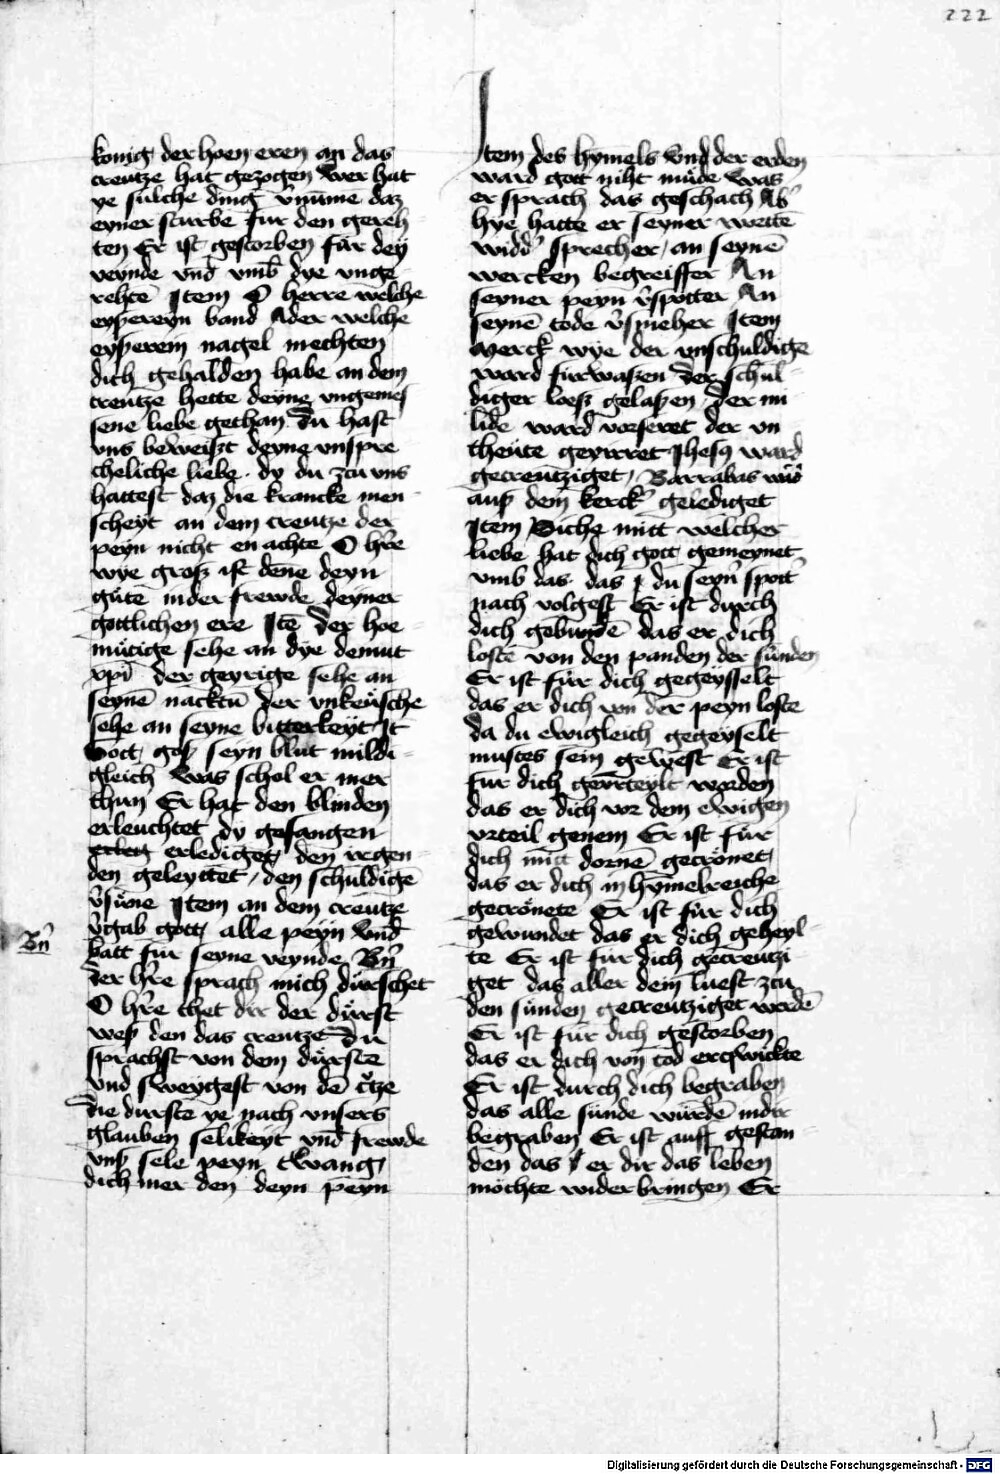 222
konig der hoen eren an das
creutze hat gezogen Wer hat
ye sulche ding v̄nūmē daz
eyner sturbe fur den gereh
ten Er ist gestorben für dey
veynde vnd vmb dye vnge
rehtē Item O herre welche
eysereyn band Ader welche
eyserein nagel mechten
dich gehalden habe an dem
creutze hette deyne vngemes
sene liebe gethan Du hast
vns beweiszt deyne vnspre
cheliche liebe . dy du zcu vns
hattest daz die krancke men
scheyt an dem creutze der
peyn nicht en achte O h're
wye grosz ist dene deyn
gūte in der frewde deyner
gottlichen ere Itē der hoe
mütige sehe an dye demut
xpī der geyrige sehe an
seynē nācktū der vnkeüsche
sehe an seyne bitterkeyt It
Gott gos seyn blut mildi
gleich was schol er mer
thun Er hat den blinden
erleuchtet dy gefangen
erlediget, den irgen
den geleyttet, den schuldigē
v'süne Item an dem creutze
v'gab gott alle peyn vnd
batt für seyne veynde Bn̄
Bn̄
der h're sprach mich dürschet
O h're thet dir der dürst
wes den das creutze Du
sprachst von dem dürste
vnd sweygest von dē c'tze
die durste ye nach vnsers
glauben selikeyt vnd frewde
vns sele peyn twang,
dich mer den deyn peyn
Item des hymels vnd der erden
ward gott niht müde was
er sprach das geschach Ab'
hye hatte er seyner wettē
widd' sprecher, an seynē
wercken begreiffer An
seyner peyn v'spotter An
seynē tode v'spieher Item
Merck wye der vnschuldige
ward fürwaszen der schul
diger loesz gelasen, der mi
lide ward vorseret der vn
theüte geyrret Jhesus ward
getreutziget, Barrabas
aus dem kerck' gelediget
Item Siche mitt welcher
liebe hat dich gott gemeynet
vmb das das du seyn' spott'
nach volgest Er ist durch
dich gebundē das er dich
loste von den panden der sünden
Er ist für dich gegeysselt
das er dich von der peyn loste
da du ewigleich gegeyselt
mustes sein gewest Er ist
für dich gevrteylt worden
das er dich vor dem ewigen
vrteil genem Er ist für
dich mitt dornē gecrönet,
das er dich in hymelreiche
gecrönete Er ist für dich
gewundet das er dich geheyl
te Er ist für dich gecreutzi
get das aller dein luest zcu
den sünden gecreutziget werdē
Er ist für dich gestorben
das er dich von tod erqwickte
Er ist durch dich begraben
das alle sünde würdē in dir
begraben Er ist auff gestan
den das er dir das leben
möchte wider bringen Er
Digitalisierung gefördert durch die Deutsche Forschungsgemeinschaft - DFG